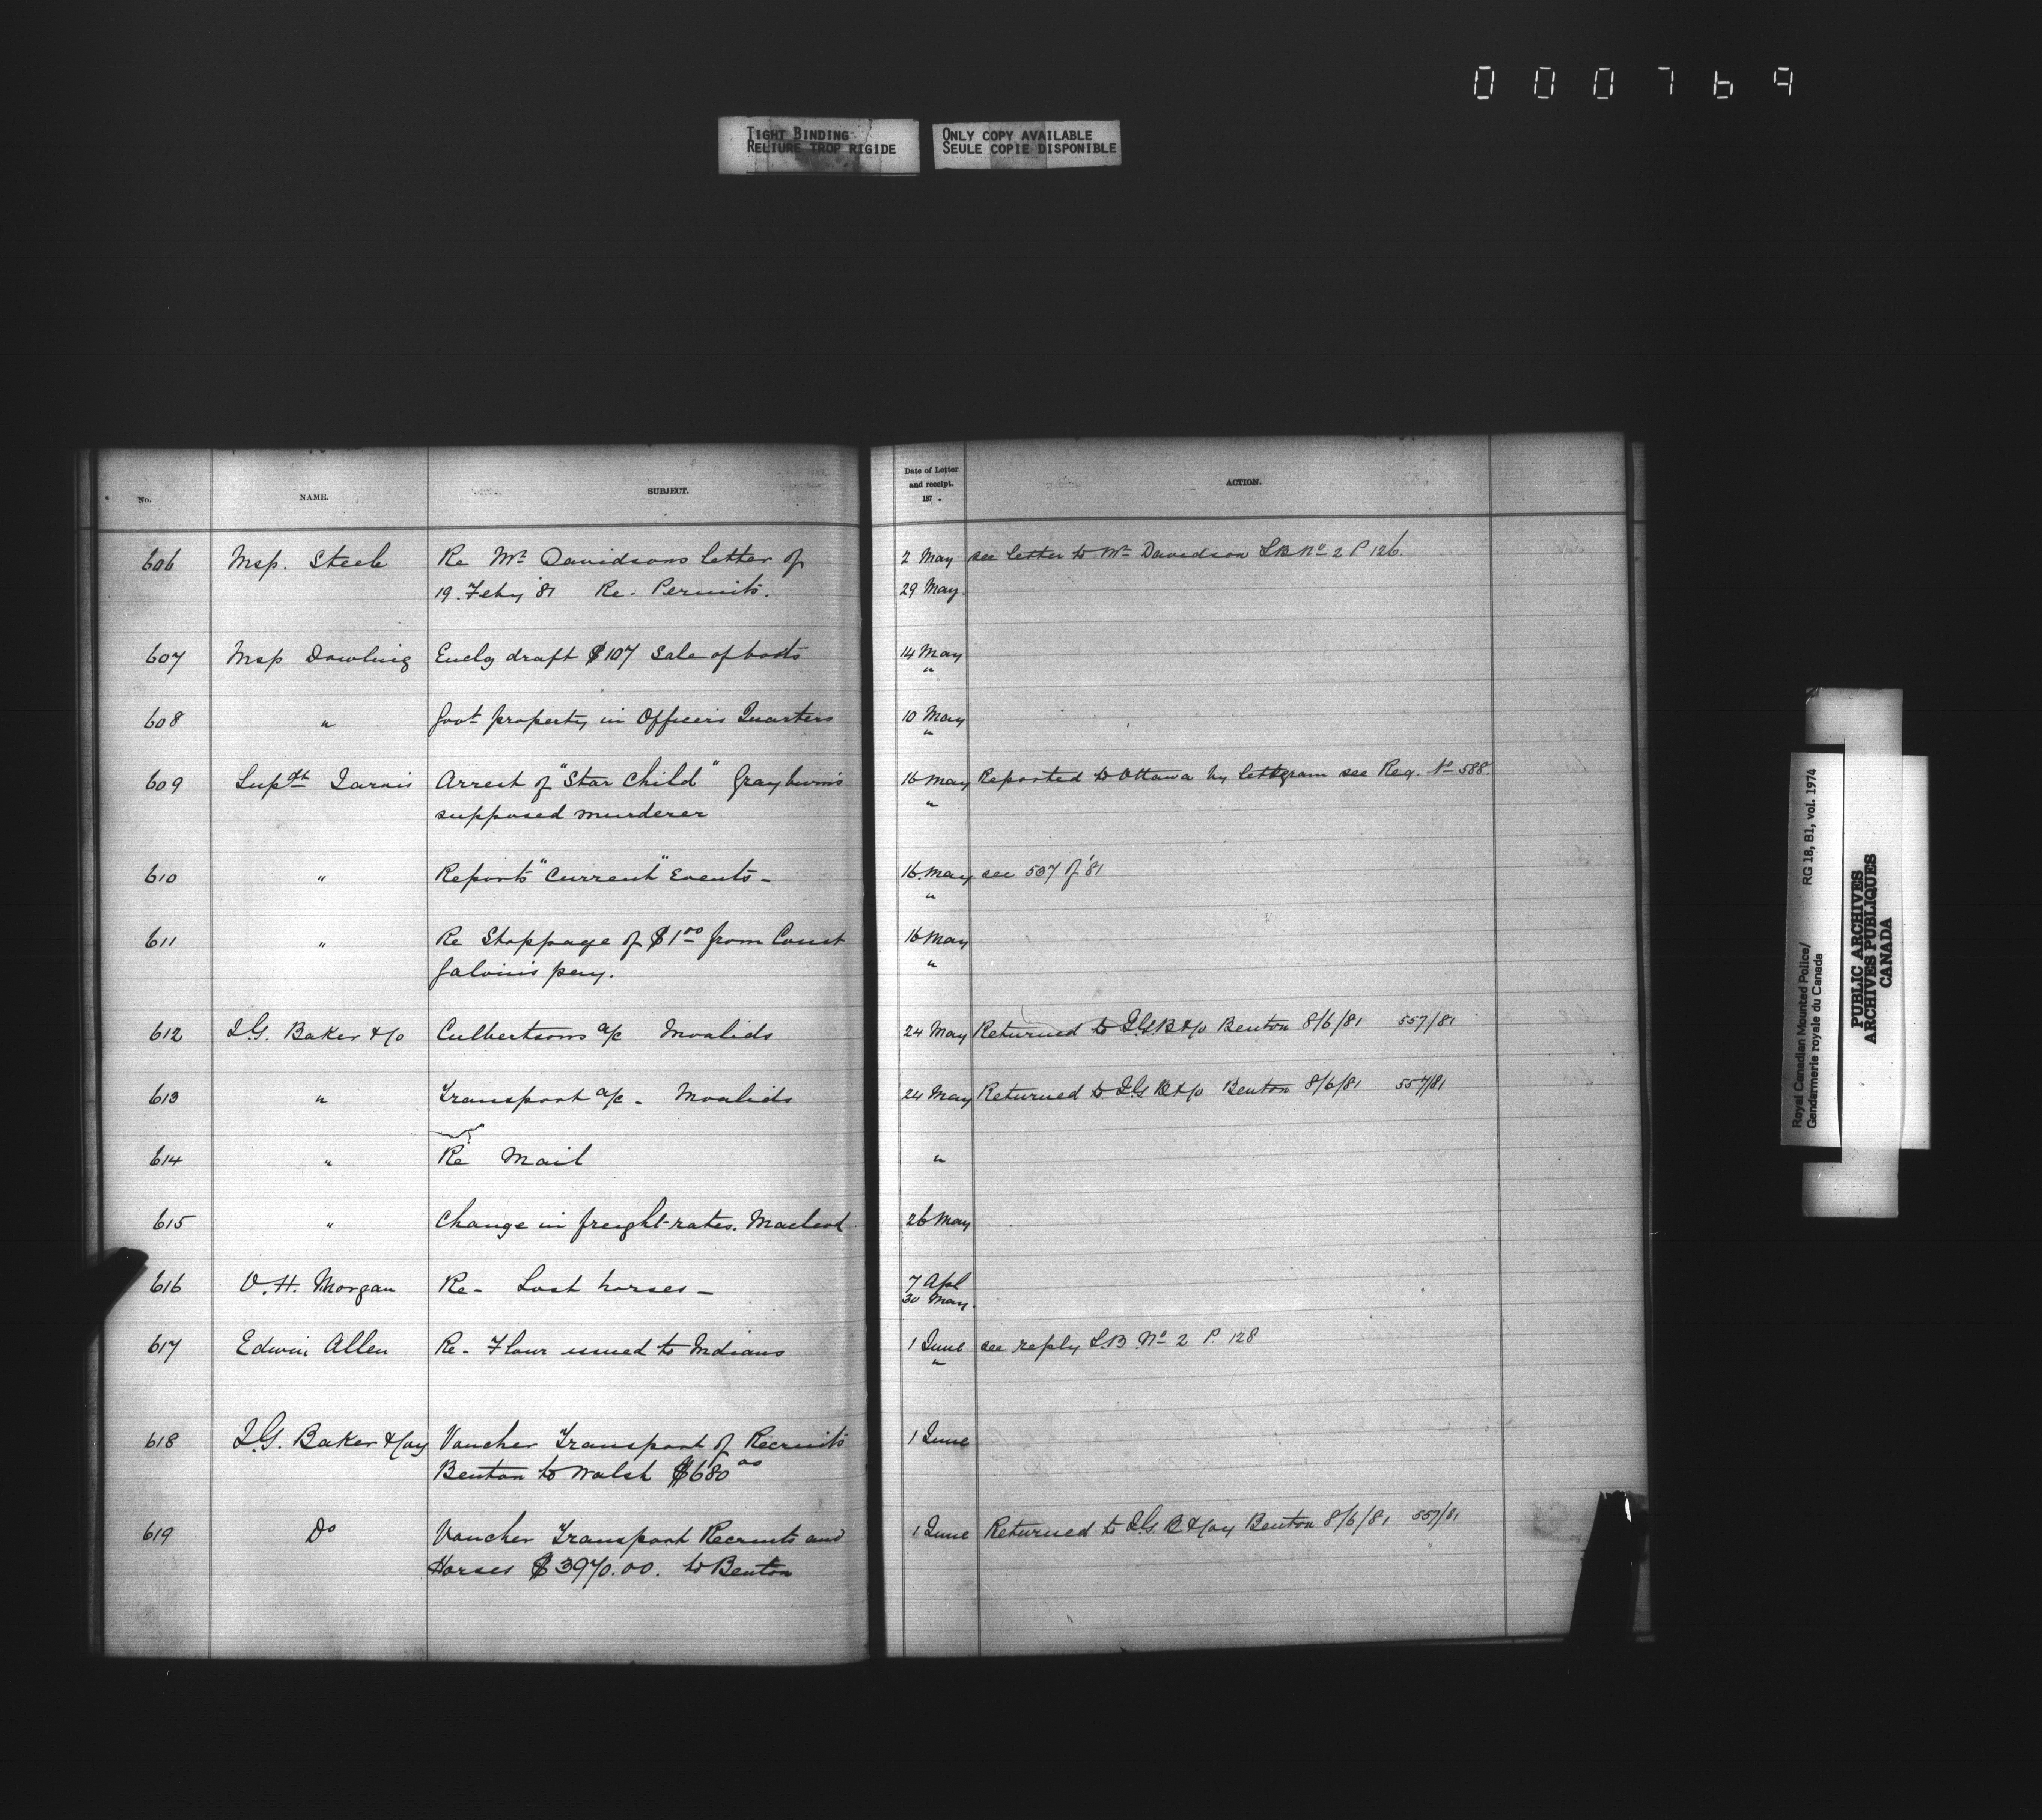 000769
TIGHT BINDING
RELIURE TROP RIGIDE
ONLY COPY AVAILABLE
SEULE COPIE DISPONIBLE
No. NAME. SUBJECT. Date of Letter and receipt. 187 . ACTION.
606 Insp. Steele Re Mr Davidsons letter of 2 May see letter to Mr Davidson LB No 2 P 126.
19. Feby '81 Re. Permits. 29 May.
607 Insp Dowling Enclg draft $107 Sale of boots 14 May
"
608 " Govt property in Officers Quarters 10 May
"
609 Supdt Jarvis Arrest of "Star Child" Grayburn's 16 May Reported to Ottawa by lettgram see Reg. No 588.
supposed murderer "
610 " Reports "Current" Events - 16. May see 537 of '81
"
611 " Re Stoppage of $1 00 from Const 16 May
Galvin's pay. "
612 I.G. Baker & Co Culbertsons a/c Invalids 24 May Returned to I.G.B & Co Benton 8/6/81 557/81
613 " Transport a/c - Invalids 24 May Returned to I.G B & Co Benton 8/6/81 557/81
614 " Re Mail "
615 " Change in freight-rates. Macleod 26 May
616 V. H. Morgan Re - Lost horses - 7 Apl
30 May.
617 Edwin Allen Re - Flour issued to Indians 1 June see reply L.B No 2 P. 128
"
618 I.G. Baker & Coy Voucher Transport of Recruits 1 June
Benton to Walsh $680 00
619 Do Voucher Transport Recruits and 1 June Returned to I.G. B & Coy Benton 8/6/81 557/81
Horses $3970.00. to Benton
Royal Canadian Mounted Police/
Gendarmerie royale du Canada
RG 18, B1, vol. 1974
PUBLIC ARCHIVES
ARCHIVES PUBLIQUES
CANADA